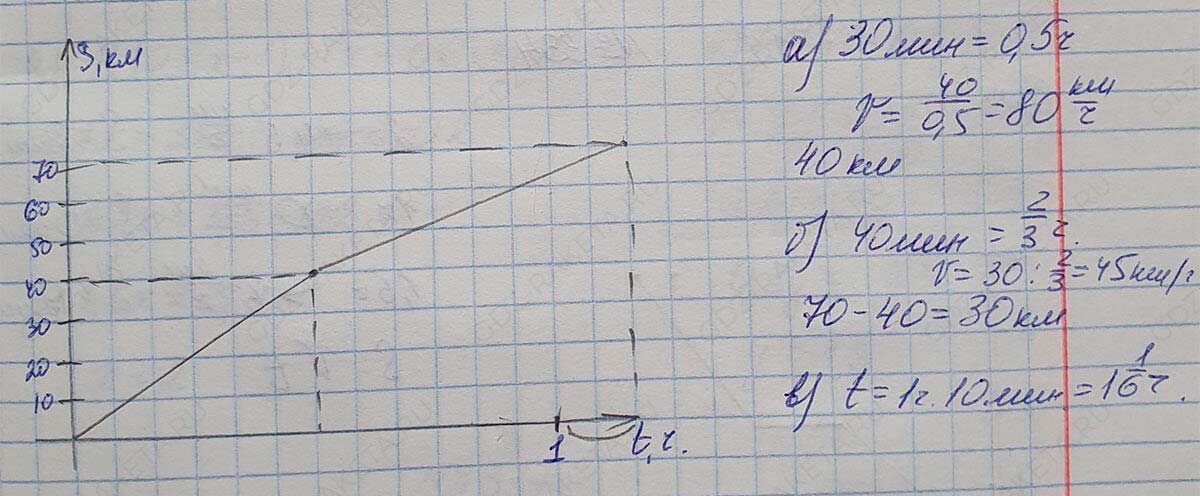 S, км
70
60
50
40
30
20
10
1
t, ч.
а) 30 мин = 0,5 ч
V = 40/0,5 = 80 км/ч
40 км
б) 40 мин = 2/3 ч.
V = 30 : 2/3 = 45 км/ч
70 - 40 = 30 км
в) t = 1 ч. 10 мин = 1 1/6 ч.